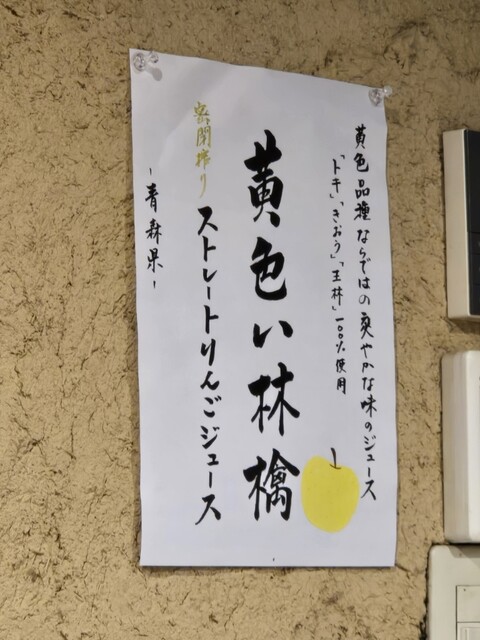 黄色品種ならではの爽やかな味のジュース
「トキ」「きおう」「王林」一〇〇%使用
黄色い林檎
密閉搾り
ストレートりんごジュース
-青森県-